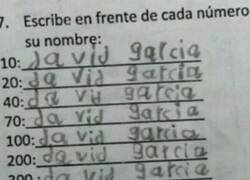 7. Escribe en frente de cada número
su nombre:
10: david garcia
20: david garcia
40: david garcia
70: david garcia
100: david garcia
200: david garcia
300: david garcia